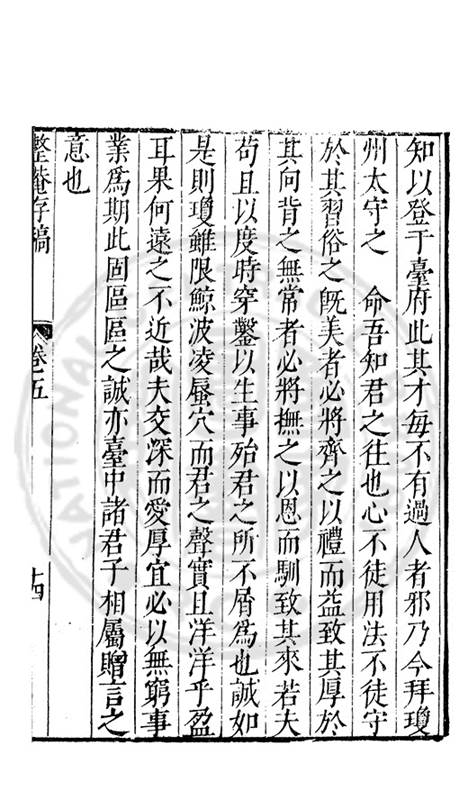 知以登于臺府此其才每不有過人者邪乃今拜瓊
州太守之　命吾知君之往也心不徒用法不徒守
於其習俗之旣美者必將齊之以禮而益致其厚於
其向背之無常者必將撫之以恩而馴致其來若夫
苟且以度時穿鑿以生事殆君之所不屑爲也誠如
是則瓊雖限鯨波凌蜃穴而君之聲實且洋洋乎盈
耳果何遠之不近哉夫交深而愛厚宜必以無窮事
業爲期此固區區之誠亦臺中諸君子相屬贈言之
意也
整菴存稿　卷之五　十四